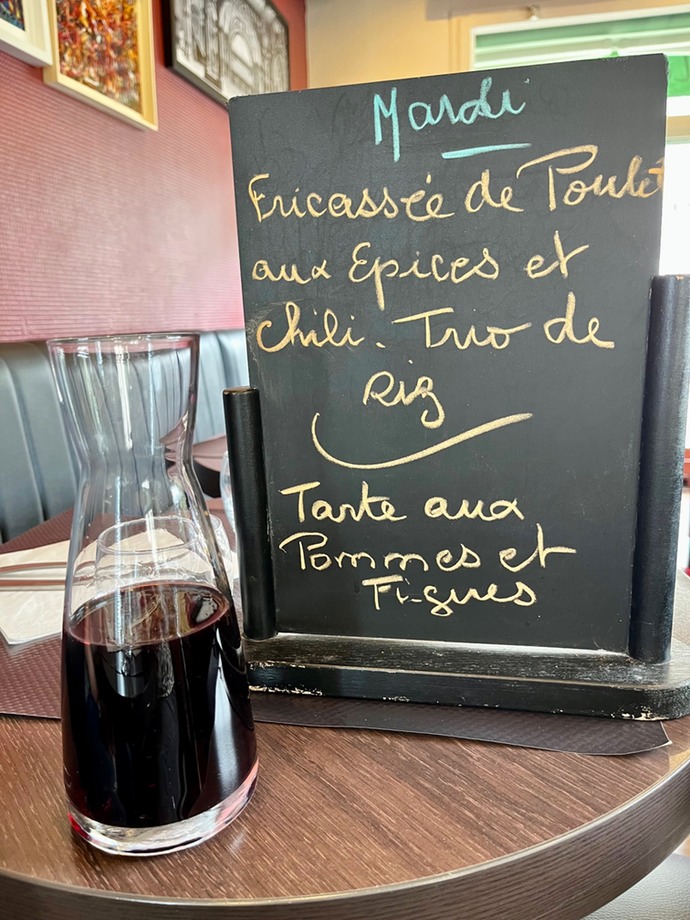 Mardi
Fricassée de Poulet
aux Epices et
Chili. Trio de
Riz
Tarte aux
Pommes et
Figues